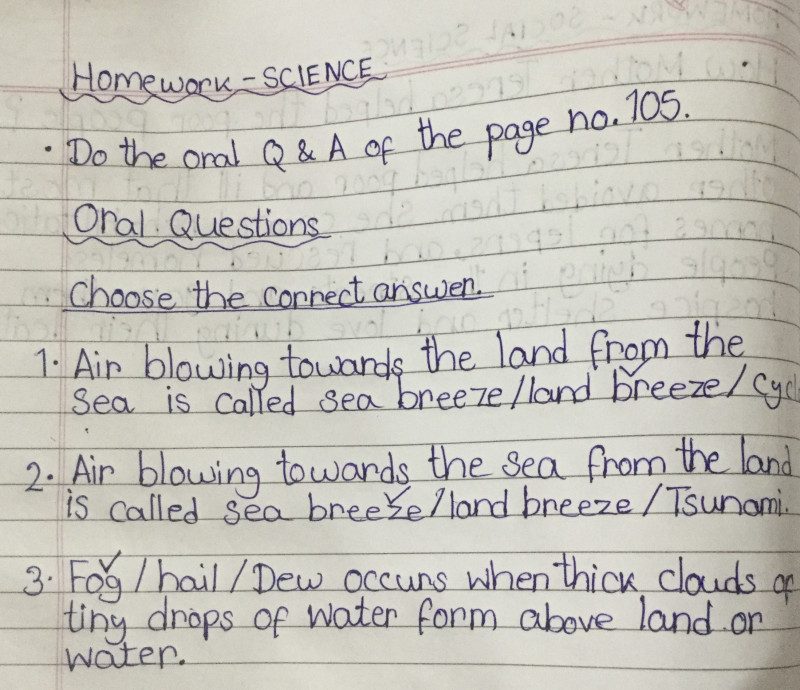 Homework - SCIENCE
• Do the oral Q & A of the page no. 105.
Oral Questions
Choose the correct answer.
1. Air blowing towards the land from the
sea is called sea breeze/land breeze/
2. Air blowing towards the sea from the land
is called sea breeze/land breeze/Tsunami.
3. Fog/hail/Dew occurs when thick clouds of
tiny drops of water form above land or
water.